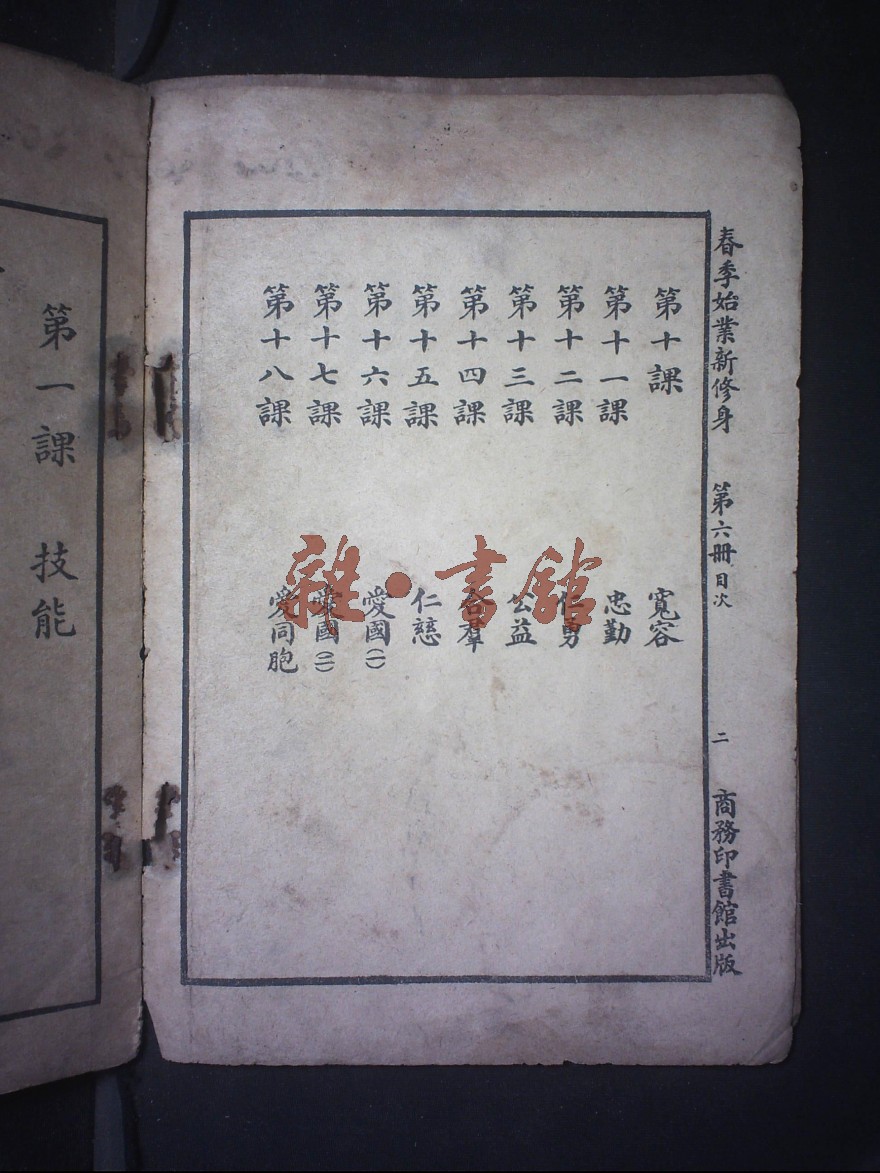 春季始業新修身 第六冊 目次 二 商務印書館出版
第十課 寬容
第十一課 忠勤
第十二課 仁勇
第十三課 公益
第十四課 合羣
第十五課 仁慈
第十六課 愛國(一)
第十七課 愛國(二)
第十八課 愛同胞
雜·書館
第一課 技能